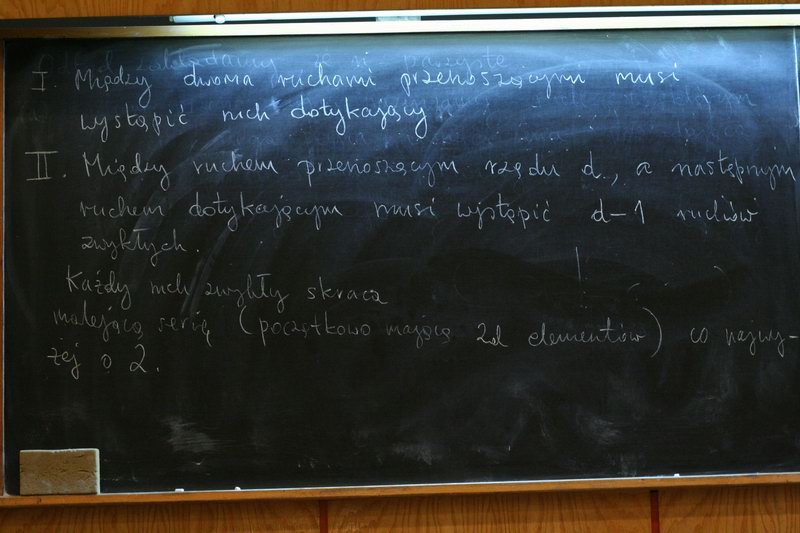 I. Między dwoma ruchami przenoszącymi musi
wystąpić ruch dotykający
II. Między ruchem przenoszącym rzędu d, a następnym
ruchem dotykającym musi wystąpić d-1 ruchów
zwykłych.
Każdy ruch zwykły skraca
malejącą serię (początkowo mającą 2d elementów) co najwy-
żej o 2.